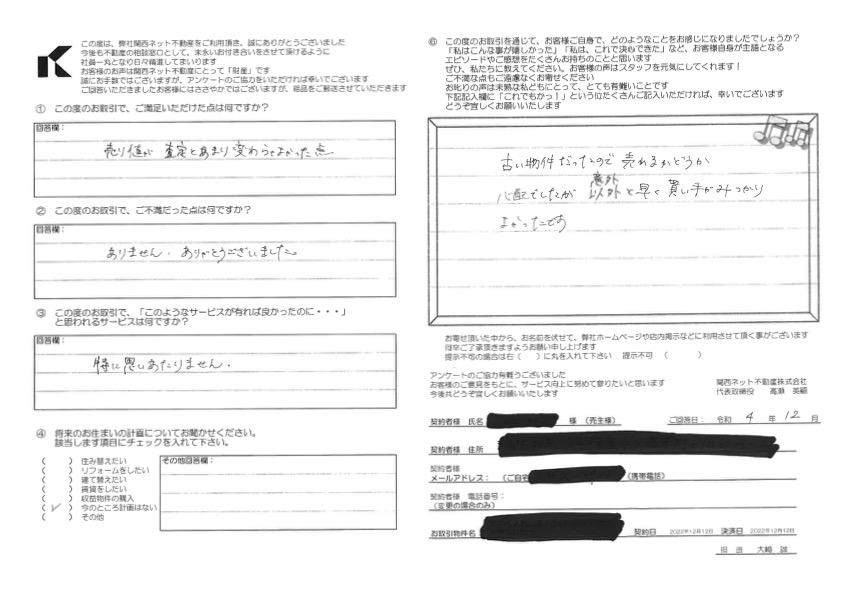 この度は、弊社関西ネット不動産をご利用頂き、誠にありがとうございました
今後も不動産の相談窓口として、末永いお付き合いをさせて頂けるように
社員一丸となり日々精進してまいります
お客様のお声は関西ネット不動産にとって「財産」です
誠にお手数ではございますが、アンケートのご協力をいただければ幸いでございます
ご回答いただきましたお客様にはささやかではございますが、粗品をご郵送させていただきます
① この度のお取引で、ご満足いただけた点は何ですか？
回答欄：
売り値が 査定とあまり変わらなかった点
② この度のお取引で、ご不満だった点は何ですか？
回答欄：
ありません．ありがとうございました。
③ この度のお取引で、「このようなサービスが有れば良かったのに・・・」
と思われるサービスは何ですか？
回答欄：
特に思いあたりません．
④ 将来のお住まいの計画についてお聞かせください。
該当します項目にチェックを入れて下さい。
（　）住み替えたい
（　）リフォームをしたい
（　）建て替えたい
（　）賃貸をしたい
（　）収益物件の購入
（✓）今のところ計画はない
（　）その他
その他回答欄：
⑥ この度のお取引を通じて、お客様ご自身で、どのようなことをお感じになりましたでしょうか？
「私はこんな事が嬉しかった」「私は、これで決心できた」など、お客様自身が主語となる
エピソードやご感想をたくさんお持ちのことと思います
ぜひ、私たちに教えてください。お客様の声はスタッフを元気にしてくれます！
ご不満な点もご遠慮なくお寄せください
お叱りの声は未熟な私どもにとって、とても有難いことです
下記記入欄に「これでもかっ！」という位たくさんご記入いただければ、幸いでございます
どうぞ宜しくお願いいたします
古い物件だったので 売れるかどうか
意外
心配でしたが 以外と早く買い手がみつかり
よかったです
お寄せ頂いた中から、お名前を伏せて、弊社ホームページや店内掲示などに利用させて頂く事がございます
何卒ご了承頂きますようお願い申し上げます
提示不可の場合は右（　）に丸を入れて下さい　提示不可（　）
アンケートのご協力有難うございました
お客様のご意見をもとに、サービス向上に努めて参りたいと思います
今後共どうぞ宜しくお願いいたします
関西ネット不動産株式会社
代表取締役　高瀬　英顕
契約者様 氏名 様 （売主様） ご回答日： 令和 4 年 12 月
契約者様 住所
契約者様
メールアドレス：（ご自宅 （携帯電話）
契約者様 電話番号：
（変更の場合のみ）
お取引物件名 契約日 2022年12月12日 決済日 2022年12月12日
担 当 大崎 誠